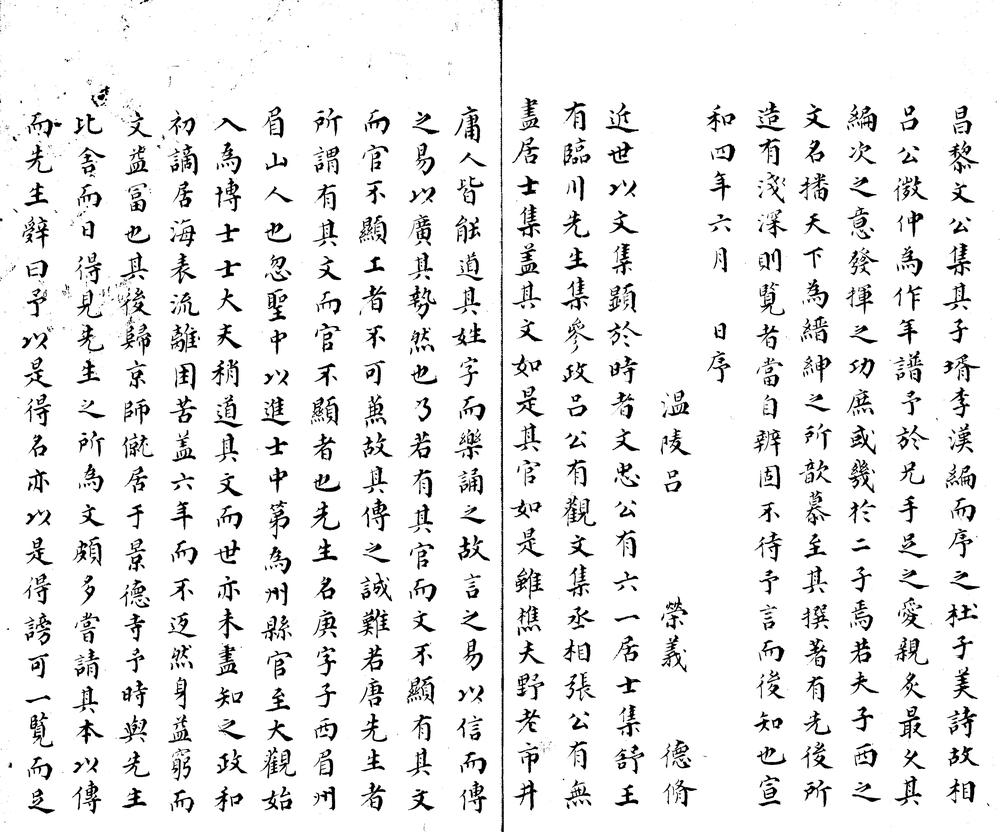 昌黎文公集其子壻李漢編而序之杜子美詩故相
呂公微仲為作年譜予於兄手足之愛親炙最久其
編次之意發揮之功庶或幾於二子焉若夫子西之
文名播天下為縉紳之所歆慕至其撰著有先後所
造有淺深則覽者當自辨固不待予言而後知也宣
和四年六月 日序
溫陵呂 榮義 德脩
近世以文集顯於時者文忠公有六一居士集舒王
有臨川先生集參政呂公有觀文集丞相張公有無
盡居士集盖其文如是其官如是雖樵夫野老市井
庸人皆能道其姓字而樂誦之故言之易以信而傳
之易以廣其勢然也乃若有其官而文不顯有其文
而官不顯工者不可兼故其傳之誠難若唐先生者
所謂有其文而官不顯者也先生名庚字子西眉州
眉山人也忽聖中以進士中第為州縣官至大觀始
入為博士士大夫稍道其文而世亦未盡知之政和
初謫居海表流離困苦盖六年而不返然身益窮而
文益富也其後歸京師僦居于景德寺予時與先生
比舍而日得見先生之所為文頗多嘗請其本以傳
而先生辭曰予以是得名亦以是得謗可一覽而足